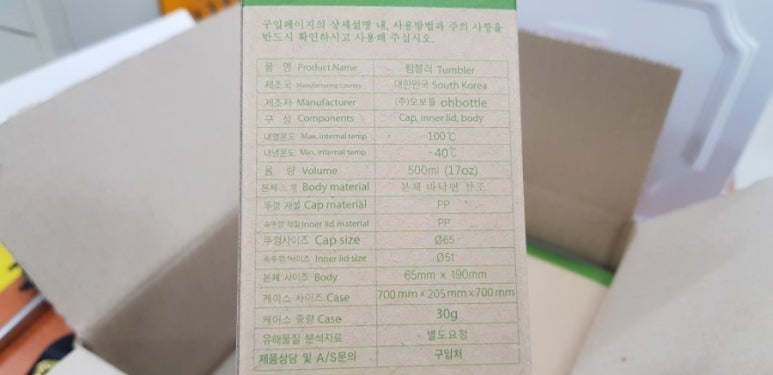 구입페이지의 상세설명 내, 사용방법과 주의 사항을
반드시 확인하시고 사용해 주십시오.
품 명 Product Name 텀블러 Tumbler
제조국 Manufacturing Country 대한민국 South Korea
제조자 Manufacturer (주)오보틀 ohbottle
구 성 Components Cap, inner lid, body
내열온도 Max. internal temp 100℃
내냉온도 Min. internal temp -40℃
용 량 Volume 500ml (17oz)
본체소재 Body material 본체 바닥면 참조
뚜껑 재질 Cap material PP
속뚜껑 재질 Inner lid material PP
뚜껑사이즈 Cap size Ø65
속뚜껑 사이즈 Inner lid size Ø51
본체 사이즈 Body 65mm x 190mm
케이스 사이즈 Case 700mm x 205mm x 700mm
케이스 중량 Case 30g
유해물질 분석자료 별도요청
제품상담 및 A/S문의 구입처